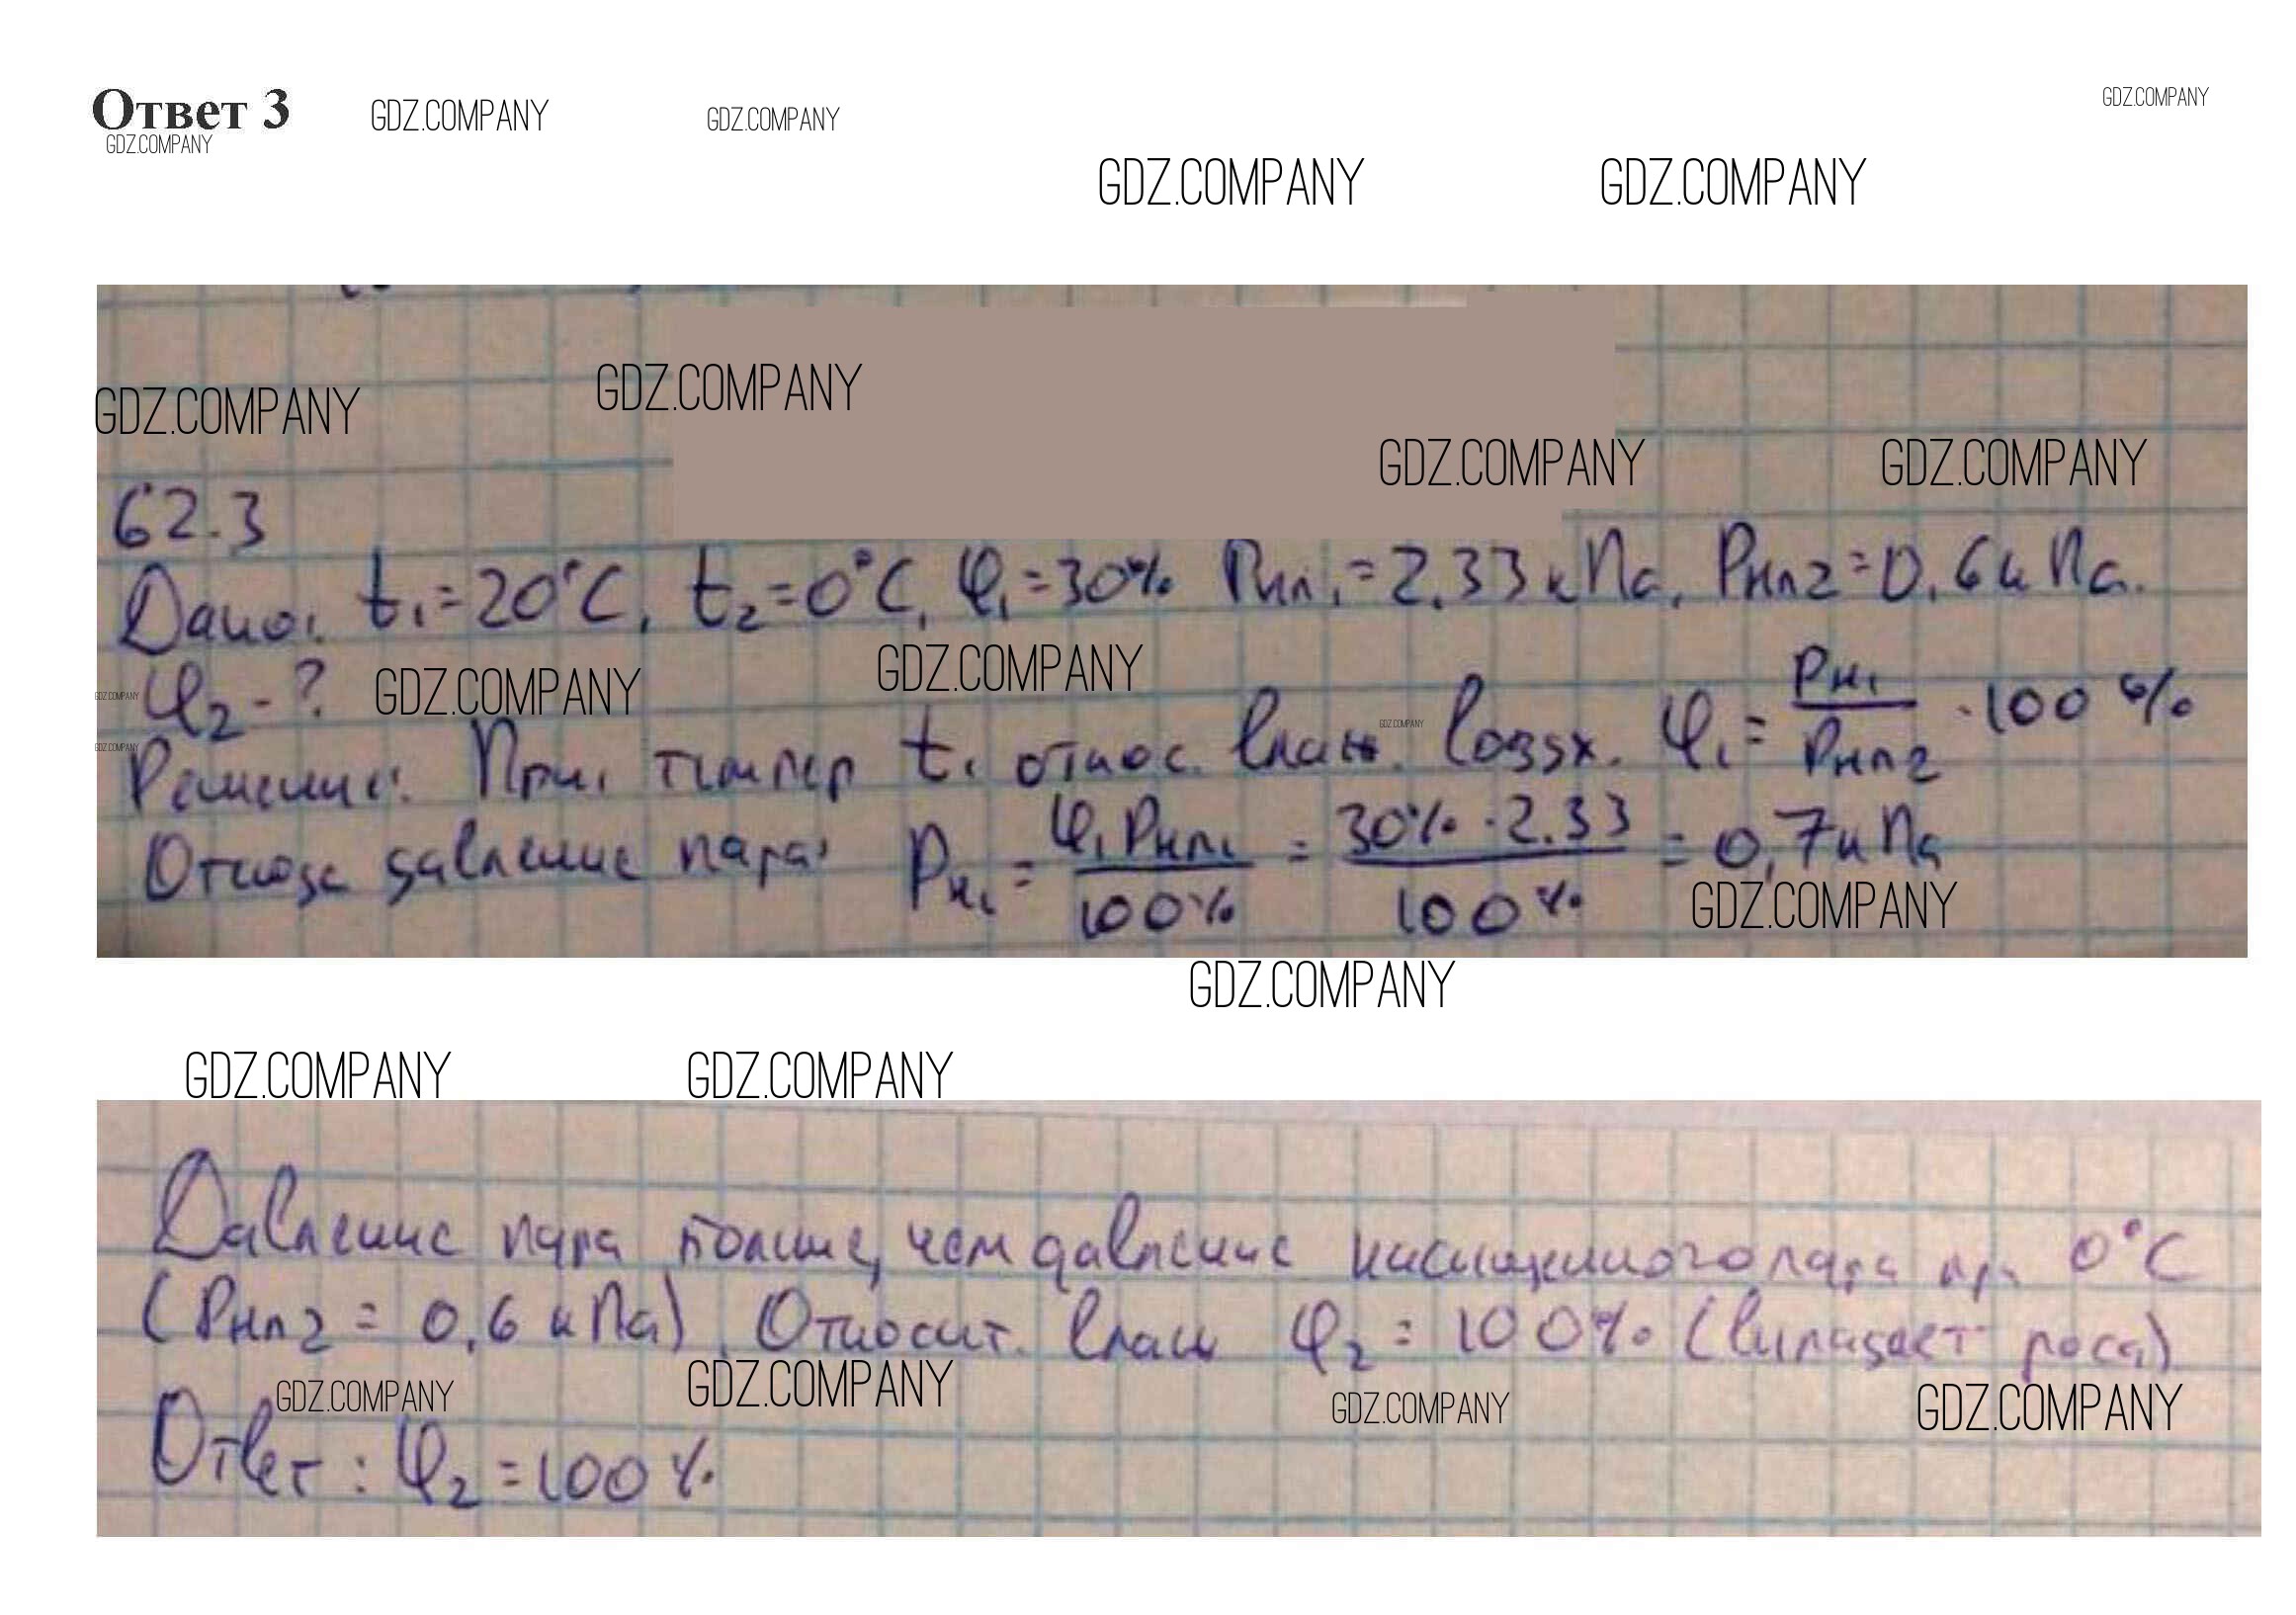 Ответ 3
GDZ.COMPANY GDZ.COMPANY GDZ.COMPANY GDZ.COMPANY
GDZ.COMPANY GDZ.COMPANY
GDZ.COMPANY GDZ.COMPANY
GDZ.COMPANY GDZ.COMPANY
62.3
Дано: t₁=20°C, t₂=0°C, φ₁=30% Pнп₁=2.33 кПа, Pнп2=0,6 кПа.
φ₂-? GDZ.COMPANY GDZ.COMPANY GDZ.COMPANY
Решение: При темпер t₁ относ. влаж. воздх. φ₁= Pн₁/Pнп2 ·100%
GDZ.COMPANY GDZ.COMPANY
Отсюда давление пара: Pн₁ = φ₁Pнп₁/100% = 30%·2.33/100% = 0,7 кПа
GDZ.COMPANY
GDZ.COMPANY
GDZ.COMPANY GDZ.COMPANY
Давление пара больше, чем давление насыщенного пара при 0°C
(Pнп2 = 0,6 кПа). Относит. влаж φ₂ = 100% (выпадает роса)
GDZ.COMPANY GDZ.COMPANY GDZ.COMPANY GDZ.COMPANY
Ответ: φ₂=100%